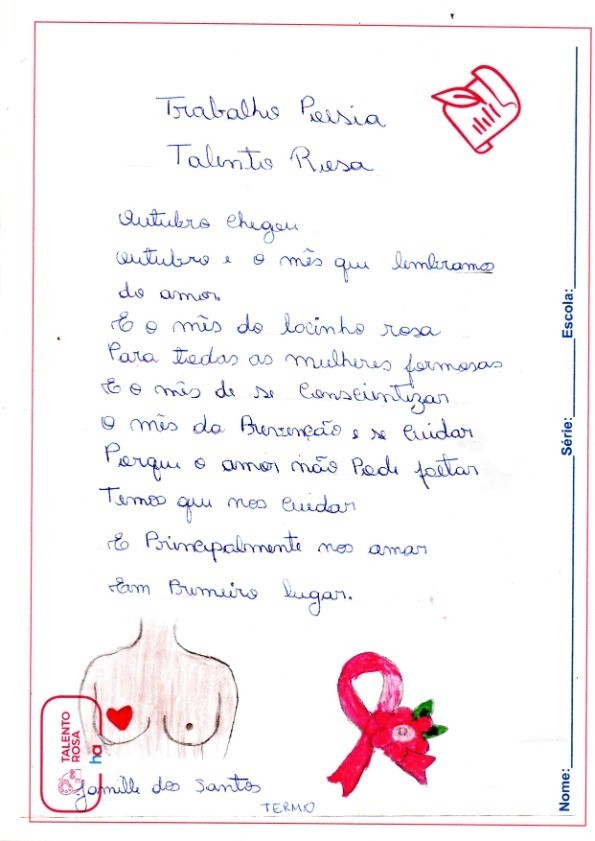 Trabalho Poesia
Talento Rosa
Outubro chegou
outubro e o mês que lembramos
do amor.
E o mês do lacinho rosa
Para todas as mulheres formosas
E o mês de se Conscientizar
O mês da Prevenção e se Cuidar
Porque o amor não Pode faltar
Temos que nos Cuidar
E Principalmente nos amar
Em Primeiro lugar.
TALENTO
ROSA
ha
Jamille dos Santos
TERMO
Nome: Série: Escola: